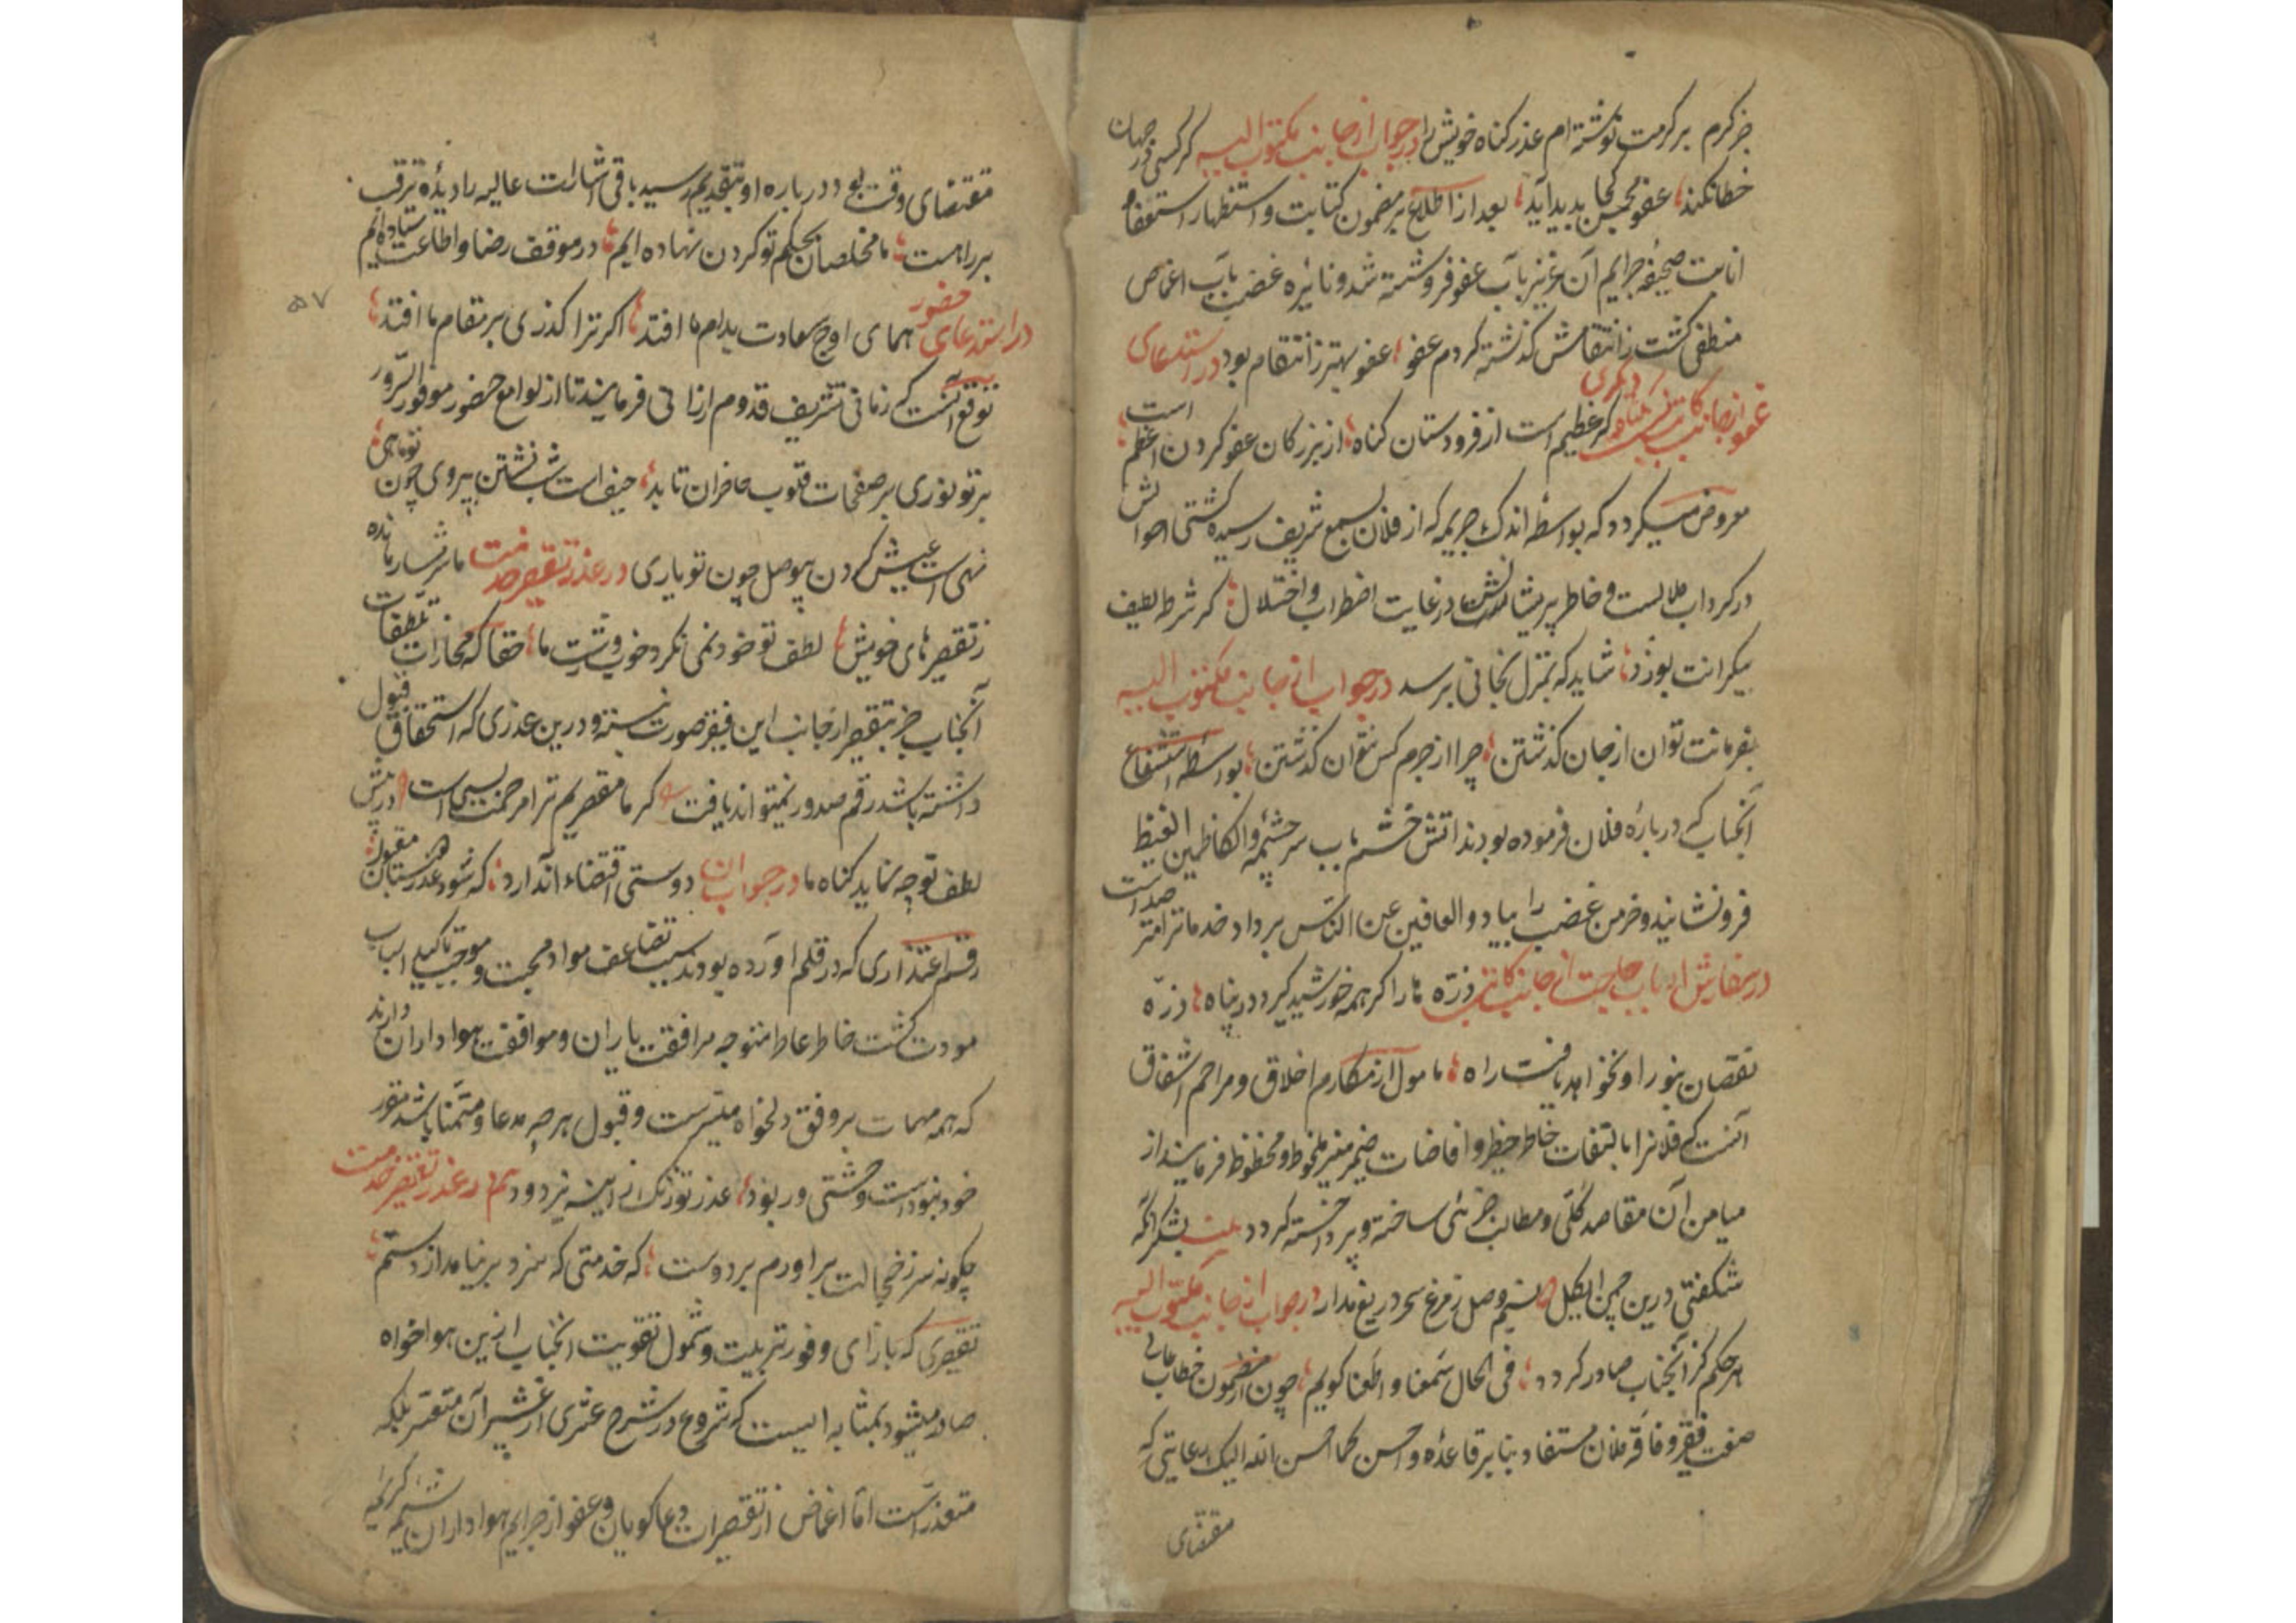 جز کرم بر کرمت نوشته ام عذر کناه خویش را در جواب از جانب مکتوب الیه کر کسی در جهان
خطا نکند عفو محسن کجا پدید آید بعد از اطلاع بر مضمون کتابت و استظهار استعفا
انابت صحیفه جرایم آن عزیز بآب عفو فرو شسته شد و نائره غضب بآب اغماض
منطفی کشت ز انتقامش کذشته کردم عفو عفو بهتر ز انتقام بود در استدعای
عفو از جانب کاتب دیکری کر عظیم است از فرودستان کناه از بزرکان عفو کردن اعظم است
معروض میکردد که بواسطه اندک جریمه که از فلان بسمع شریف رسیده کشتی احوالش
در کرداب ملالست و خاطر پریشانش در غایت اضطراب و اختلال کر شرطه لطف
بیکرانت بوزد شاید که بمنزل نجاتی برسد در جواب از جانب مکتوب الیه
بفرمانت توان از جان کذشتن چرا از جرم کس نتوان کذشتن بواسطه استشفاع
آنجناب که درباره فلان فرموده بودند اتش خشم بآب سرچشمه والکاظمین الغیظ
فرو نشانید و خرمن غضب را بباد و العافین عن الناس برداد خدمانرا صد است
در سفارش ارباب حاجت از جانب کاتب ذره ما را کر همه خورشید کیرد در پناه ذره
نقصان بنور او نخواهد یافت راه مامول از مکارم اخلاق و مراحم اشفاق
آنست که فلانرا بالتفات خاطر خطیر و افاضات ضمیر منیر ملحوظ و محظوظ فرمایند از
میامن آن مقاصد کلی و مطالب جزئی ساخته و پرداخته کردد بیت بشکرانکه
شکفتی درین چمن ای کل نسیم وصل ز مرغ سحر دریغ مدار در جواب از جانب مکتوب الیه
هر حکم کز آنجناب صادر کردد فی الحال سمعنا و اطعنا کویم چون از مضمون خطاب عالی
صفت فقر و فاقه فلان مستفاد بنا بر قاعده و احسن کما احسن الله الیک رعایتی که
مقتضای
مقتضای وقت بود درباره او بتقدیم رسید باقی اشارات عالیه را دیده ترقب
بر راهست ما مخلصان بحکم تو کردن نهاده ایم در موقف رضا و اطاعت ستاده ایم
در استدعای حضور همای اوج سعادت بدام ما افتد اکر ترا کذری بر مقام ما افتد
۵۷
توقع آنست که زمانی تشریف قدوم ارزانی فرمایند تا از لوامع حضور موفور السرور
پرتو نوری بر صفحات قلوب حاضران تابد حیف است نشستن بیروی چون تو ماهی
نهی است عیش کردن بیوصل چون تو یاری در عذر تقصیر خدمت ما شرمسار مانده
ز تقصیرهای خویش لطف تو خود نمی نکرد خوب و زشت ما حقا که مجازات تلطفات
آنجناب جز بتقصیر از جانب این فقیر صورت نبسته و درین عذری که استحقاق قبول
داشته باشد رقم صدور نمیتواند یافت کر ما مقصریم ترا مرحمت بسی است در پیش
لطف تو چه نماید کناه ما در جواب ان دوستی اقتضاء آن دارد که شود عذر دوستان مقبول
رقم اعتذاری که در قلم اورده بودند سبب تضاعف مواد محبت و موجب تاکید اسباب
مودت کشت خاطر عاطر متوجه مرافقت یاران و موافقت هواداران دارند
که همه مهمات بر وفق دلخواه میسرست و قبول هر چه مدعا و متمنا باشد مقرر
خود نبودست وحشتی ور بود عذر تو زنک از اینه بزدود هم در عذر تقصیر خدمت
چکونه سر ز خجالت براورم بر دوست که خدمتی که سزد بر نیامد از دستم
تقصیری که بازای وفور تربیت و شمول تقویت انجناب ازین هواخواه
صادر میشود بمثابه ایست که شروع در شرح عشری از عشیر آن متعسر بلکه
متعذر است اما اغماض از تقصیرات دعا کویان و عفو از جرایم هواداران شیمه کریمه